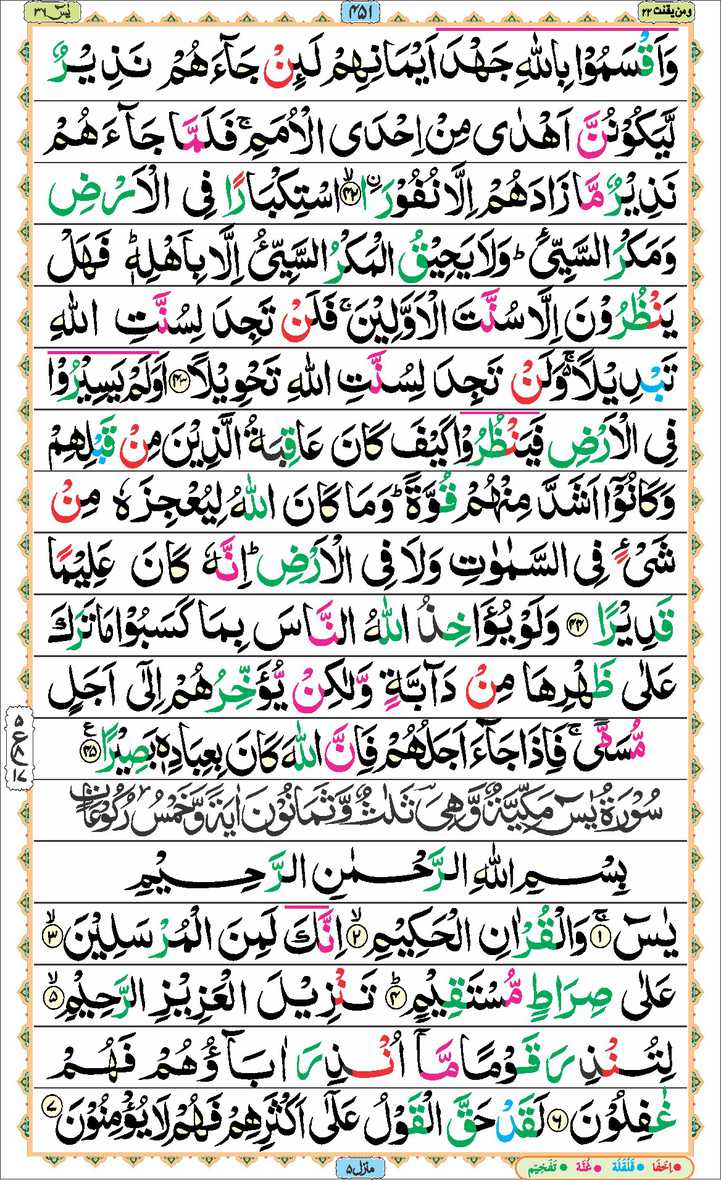 ومن یقنت ۲۲
۴۵۱
یٰسٓ ۳۶
وَاَقْسَمُوْا بِاللّٰهِ جَهْدَ اَیْمَانِهِمْ لَئِنْ جَآءَهُمْ نَذِیْرٌ
لَّیَكُوْنُنَّ اَهْدٰی مِنْ اِحْدَی الْاُمَمِ ۚ فَلَمَّا جَآءَهُمْ
نَذِیْرٌ مَّا زَادَهُمْ اِلَّا نُفُوْرَاۨ ﴿۴۲﴾ۙ اسْتِكْبَارًا فِی الْاَرْضِ
وَمَكْرَ السَّیِّئِ ؕ وَلَا یَحِیْقُ الْمَكْرُ السَّیِّئُ اِلَّا بِاَهْلِهٖ ؕ فَهَلْ
یَنْظُرُوْنَ اِلَّا سُنَّتَ الْاَوَّلِیْنَ ۚ فَلَنْ تَجِدَ لِسُنَّتِ اللّٰهِ
تَبْدِیْلًا ۬ۚ وَلَنْ تَجِدَ لِسُنَّتِ اللّٰهِ تَحْوِیْلًا ﴿۴۳﴾ اَوَلَمْ یَسِیْرُوْا
فِی الْاَرْضِ فَیَنْظُرُوْا كَیْفَ كَانَ عَاقِبَةُ الَّذِیْنَ مِنْ قَبْلِهِمْ
وَكَانُوْۤا اَشَدَّ مِنْهُمْ قُوَّةً ؕ وَمَا كَانَ اللّٰهُ لِیُعْجِزَهٗ مِنْ
شَیْءٍ فِی السَّمٰوٰتِ وَلَا فِی الْاَرْضِ ؕ اِنَّهٗ كَانَ عَلِیْمًا
قَدِیْرًا ﴿۴۴﴾ وَلَوْ یُؤَاخِذُ اللّٰهُ النَّاسَ بِمَا كَسَبُوْا مَا تَرَكَ
عَلٰی ظَهْرِهَا مِنْ دَآبَّةٍ وَّلٰكِنْ یُّؤَخِّرُهُمْ اِلٰۤی اَجَلٍ
مُّسَمًّی ۚ فَاِذَا جَآءَ اَجَلُهُمْ فَاِنَّ اللّٰهَ كَانَ بِعِبَادِهٖ بَصِیْرًا ﴿۴۵﴾ع
۵ ع ۱۷
سُوْرَةُ یٰسٓ مَكِّیَّةٌ وَّهِیَ ثَلٰثٌ وَّثَمَانُوْنَ اٰیَةً وَّخَمْسُ رُكُوْعَاتٍ
بِسْمِ اللّٰهِ الرَّحْمٰنِ الرَّحِیْمِ
یٰسٓ ﴿۱﴾ۚ وَالْقُرْاٰنِ الْحَكِیْمِ ﴿۲﴾ۙ اِنَّكَ لَمِنَ الْمُرْسَلِیْنَ ﴿۳﴾ۙ
عَلٰی صِرَاطٍ مُّسْتَقِیْمٍ ﴿۴﴾ؕ تَنْزِیْلَ الْعَزِیْزِ الرَّحِیْمِ ﴿۵﴾ۙ
لِتُنْذِرَ قَوْمًا مَّاۤ اُنْذِرَ اٰبَآؤُهُمْ فَهُمْ
غٰفِلُوْنَ ﴿۶﴾ لَقَدْ حَقَّ الْقَوْلُ عَلٰۤی اَكْثَرِهِمْ فَهُمْ لَا یُؤْمِنُوْنَ ﴿۷﴾
منزل ۵
اِخْفَا • قَلْقَلَة • غُنَّة • تَفْخِیْم